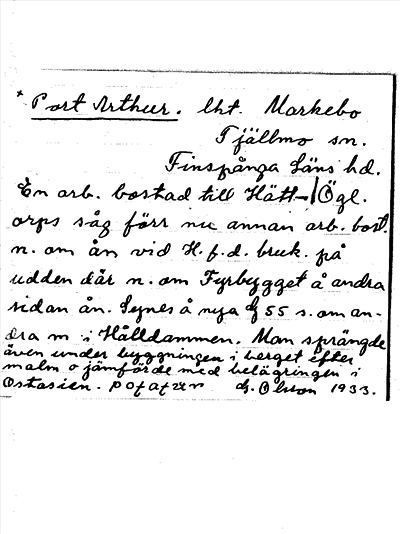 * Port Arthur. lht. Markebo
Tjällmo sn.
Finspånga Läns hd.
En arb. bostad till Hätt-/Ögl.
orps såg förr nu annan arb. bost.
n. om ån vid H. f. d. bruk. på
udden där n. om Fyrbygget å andra
sidan ån. Synes å nya 55 s. om an-
dra m i Hålldammen. Man sprängde
även under byggningen i berget efter
malm o jämförde med belägringen i
Ostasien. G. Olsson 1933.